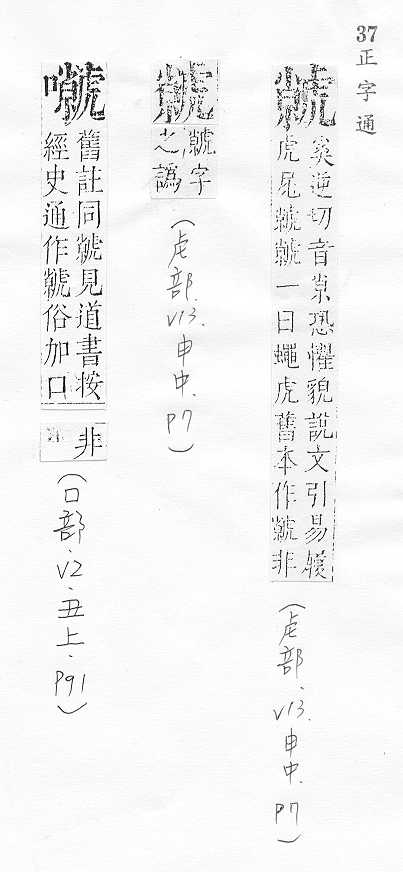 37 正字通
虩
奚逆切音𡭴恐懼貌說文引易履
虎尾虩虩一曰蠅虎舊本作虩非
（虍部、V13、申中、P7）
虩
虩字
之譌
（虍部、V13、申中、P7）
㘊
舊註同虩見道書按
經史通作虩俗加口
非
（口部、V2、丑上、P91）